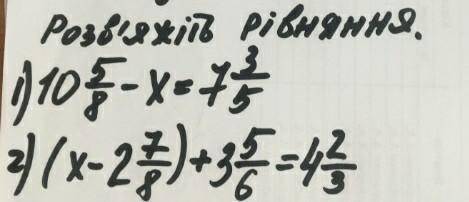 Розв'яжіть рівняння.
1) 10 5/8 - x = 7 3/5
2) (x - 2 7/8) + 3 5/6 = 4 2/3